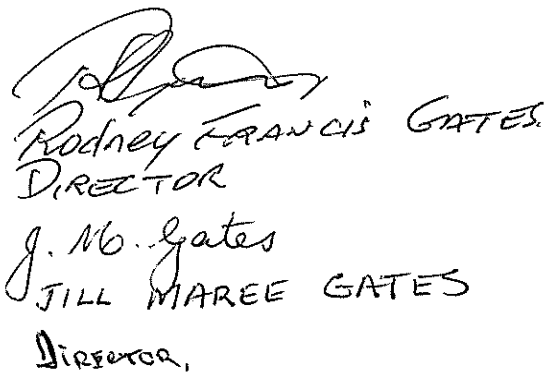 Rodney FRANCIS GATES.
DIRECTOR
J. M. Gates
JILL MAREE GATES
DIRECTOR.